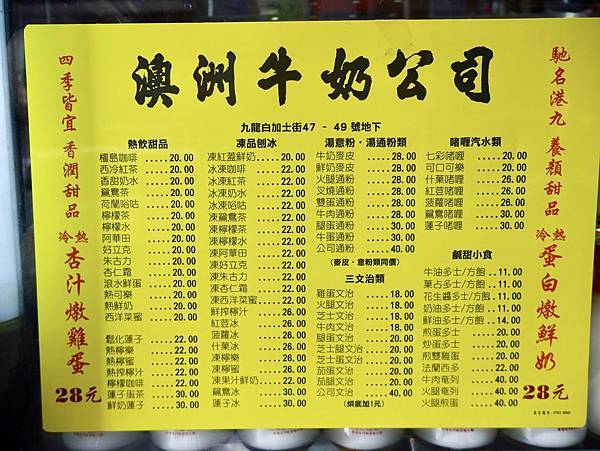 澳洲牛奶公司
九龍白加士街47 - 49 號地下
四季皆宜 香潤甜品
冷熱 杏汁燉雞蛋
28元
熱飲甜品
檀島咖啡 ..... 20.00
西冷紅茶 ..... 20.00
香甜奶水 ..... 20.00
鴛鴦茶 ..... 20.00
荷蘭唂咕 ..... 20.00
檸檬茶 ..... 20.00
檸檬水 ..... 20.00
阿華田 ..... 20.00
好立克 ..... 20.00
朱古力 ..... 20.00
杏仁霜 ..... 20.00
滾水鮮蛋 ..... 20.00
熱可樂 ..... 20.00
熱鮮奶 ..... 20.00
西洋菜蜜 ..... 20.00
鬆化蓮子 ..... 22.00
熱檸樂 ..... 22.00
熱檸蜜 ..... 22.00
熱搾檸汁 ..... 22.00
檸檬咖啡 ..... 22.00
蓮子蛋茶 ..... 30.00
鮮奶蓮子 ..... 30.00
凍品刨冰
凍紅蓋鮮奶 ..... 20.00
冰凍咖啡 ..... 22.00
冰凍紅茶 ..... 22.00
冰凍奶水 ..... 22.00
冰凍唂咕 ..... 22.00
凍鴛鴦茶 ..... 22.00
凍檸檬茶 ..... 22.00
凍檸檬水 ..... 22.00
凍阿華田 ..... 22.00
凍好立克 ..... 22.00
凍朱古力 ..... 22.00
凍杏仁霜 ..... 22.00
凍西洋菜蜜 ..... 22.00
鮮搾檸汁 ..... 26.00
紅荳冰 ..... 26.00
菠蘿冰 ..... 26.00
什菓冰 ..... 26.00
凍檸樂 ..... 26.00
凍檸蜜 ..... 26.00
凍菓汁鮮奶 ..... 22.00
鴛鴦冰 ..... 30.00
蓮子冰 ..... 30.00
湯意粉・湯通粉類
牛奶麥皮 ..... 28.00
鮮奶麥皮 ..... 28.00
火腿通粉 ..... 28.00
叉燒通粉 ..... 28.00
雙蛋通粉 ..... 28.00
牛肉通粉 ..... 28.00
腿蛋通粉 ..... 30.00
牛蛋通粉 ..... 30.00
公司通粉 ..... 40.00
(麥皮・意粉類同價)
三文治類
雞蛋文治 ..... 18.00
火腿文治 ..... 18.00
芝士文治 ..... 18.00
牛肉文治 ..... 18.00
腿蛋文治 ..... 20.00
芝士腿文治 ..... 20.00
芝士蛋文治 ..... 20.00
茄蛋文治 ..... 20.00
茄腿文治 ..... 20.00
公司文治 ..... 40.00
(烘底加1元)
啫喱汽水類
七彩啫喱 ..... 20.00
可口可樂 ..... 20.00
什菓啫喱 ..... 26.00
紅荳啫喱 ..... 26.00
菠蘿啫喱 ..... 26.00
鴛鴦啫喱 ..... 30.00
蓮子啫喱 ..... 30.00
鹹甜小食
牛油多士/方飽 ... 11.00
菓占多士/方飽 ... 11.00
花生醬多士/方飽 . 11.00
奶油多士/方飽 ... 11.00
鮮油多士/方飽 .. 14.00
煎蛋多士 ..... 20.00
炒蛋多士 ..... 20.00
煎雙雞蛋 ..... 20.00
法蘭西多 ..... 22.00
牛肉奄列 ..... 40.00
火腿奄列 ..... 40.00
火腿煎蛋 ..... 40.00
馳名港九 養顏甜品
冷熱 蛋白燉鮮奶
28元